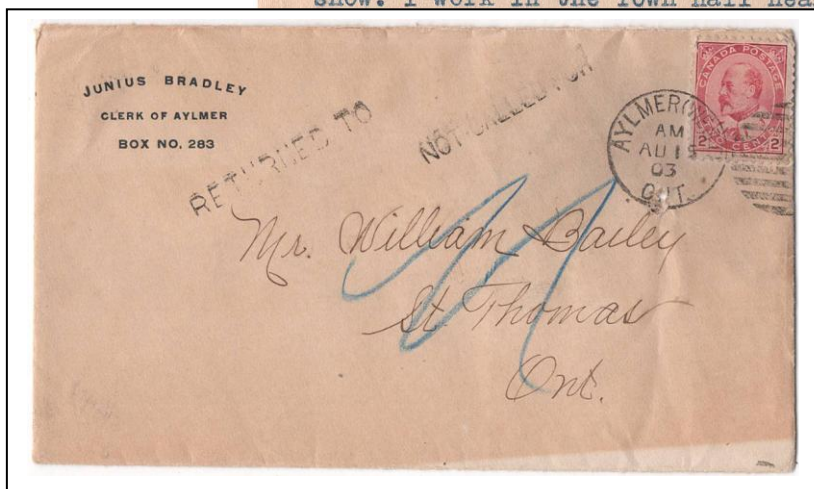 show. I work in the Town Hall
JUNIUS BRADLEY
CLERK OF AYLMER
BOX NO. 283
RETURNED TO
NOT CALLED FOR
AYLMER
AM
AU 15
03
ONT.
CANADA POSTAGE
2 CENTS 2
Mr. William Bailey
St Thomas
Ont.